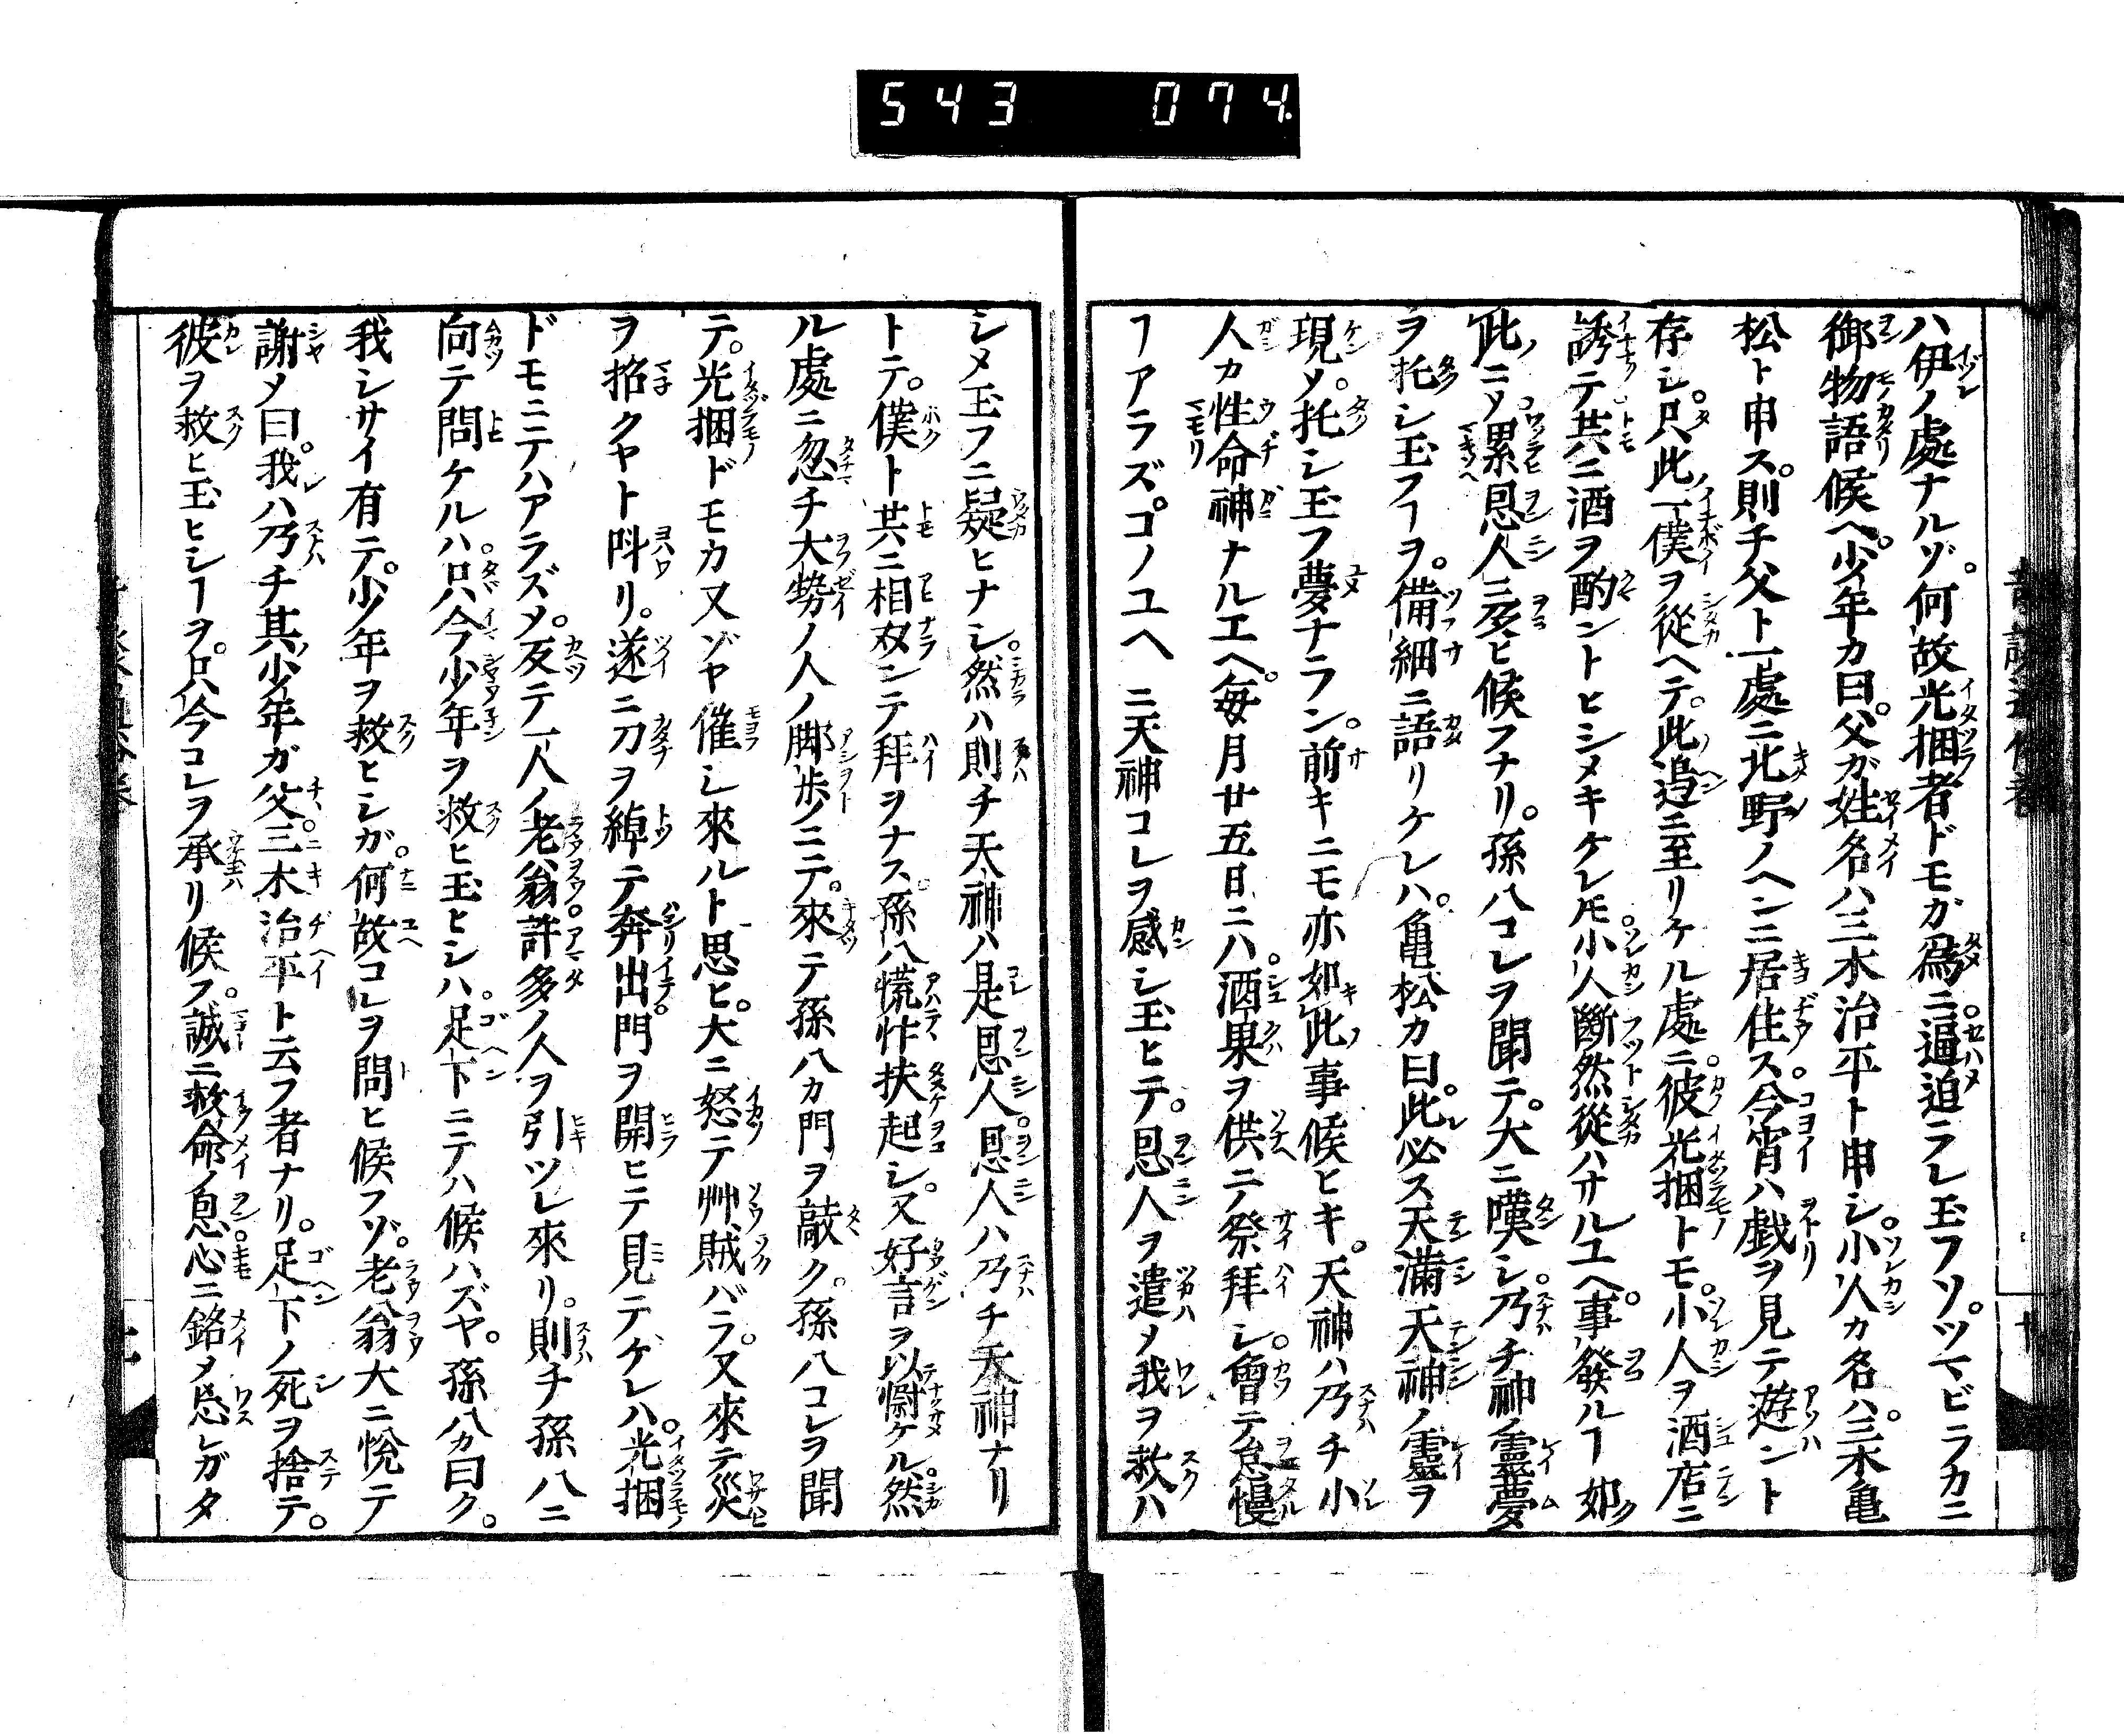 543 074.
ハ伊ノ處ナルゾ。何故光捆者ドモガ爲ニ逼迫ラレ玉フソ。ツマビラカニ
御物語候ヘ。少年カ曰。父ガ姓名ハ三木治平ト申シ。小人カ名ハ三木亀
松ト申ス。則チ父ト一處ニ北野ノヘンニ居住ス。今宵ハ戯ヲ見テ遊ント
存シ。只此ノ一僕ヲ從ヘテ。此ノ邉ニ至リケル處ニ。彼光捆トモ。小人ヲ酒店ニ
誘テ共ニ酒ヲ酌ントヒシメキケレ𪜈。小人斷然從ハナルユヘ。事發ルヿ如ク
此ノニ〆。累恩人ニ及ヒ候フナリ。孫八コレヲ聞テ。大ニ嘆シ。乃チ神ノ靈夢
ヲ托シ玉フヿヲ。備細ニ語リケレハ。亀松カ曰。此レ必ス天滿天神ノ靈ヲ
現〆。托シ玉フ夢ナラン。前キニモ亦如キ此ノ事候ヒキ。天神ハ乃チ小
人カ性命神ナルエヘ。毎月廿五日ニハ酒果ヲ供ニノ祭拜シ。會テ怠慢
ヿアラズ。コノユヘ ニ天神コレヲ感シ玉ヒテ。恩人ヲ遣〆我ヲ救ハ
シメ玉フニ疑ヒナシ。然ハ則チ天神ハ是恩人。恩人ハ乃チ天神ナリ
トテ。僕ト共ニ相双シテ拜ヲナス。孫八慌忙扶起シ。又好言ヲ以慰ケル。然
ル處ニ忽チ大勢ノ人ノ脚歩ノニテ。來テ孫八カ門ヲ敲ク。孫八コレヲ聞
テ。光捆ドモカ又ゾヤ催シ來ルト思ヒ。大ニ怒テ艸賊バラ。又來テ災
ヲ招クヤト呌リ。遂ニ刀ヲ綽テ奔出。門ヲ開ヒテ見テケレハ。光捆
ドモニテハアラズ〆。反テ一人ノ老翁。許多ノ人ヲ引ツレ來リ。則チ孫八ニ
向テ問ケルハ。只今少年ヲ救ヒ玉ヒシハ。足下ニテハ候ハズヤ。孫八カ曰ク。
我シサイ有テ。少年ヲ救ヒシガ。何故コレヲ問ヒ候フゾ。老翁大ニ悅テ
謝〆曰。我レハ乃チ其ノ少年ガ父。三木治平ト云フ者ナリ。足下ノ死ヲ捨テ。
彼ヲ救ヒ玉ヒシヿヲ。只今コレヲ承リ候フ。誠ニ救命ノ恩。心ニ銘〆忘レガタ